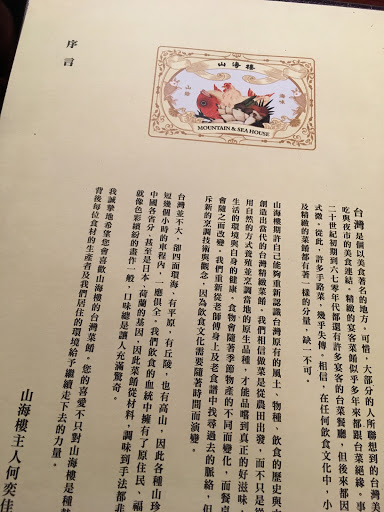 序言
山海樓
山珍
海味
MOUNTAIN & SEA HOUSE
台灣是個以美食著名的地方，可惜，大部分的人所聯想到的台灣美
吃與夜市的美食連結。精緻的宴客菜餚似乎多年來都跟台菜絕緣。事
二十世紀初期到六七零年代都還有許多宴客的台菜餐廳，但後來都因
式微。從此，許多手路菜，幾乎失傳。相信，在任何飲食文化中，小
及精緻的菜餚都有著一樣的分量，缺一不可，
山海樓期許自己能夠重新認識台灣原有的風土、物種、飲食的歷史與
創造出當代的台灣精緻菜餚。我們相信做菜是從農田出發，而不只是從
用自然的方式養殖並烹調當地的原生品種，才能品嚐到真正的好滋味，
生活的環境與自身的健康。食物會隨著季節物產的不同而變化，而餐桌
會隨之而改變。我們重新從老師傅身上及老食譜中找尋過去的脈絡，但
斥新的烹調技術與觀念，因為飲食文化需要隨著時間而演變。
台灣並不大，卻四面環海，有平原，有丘陵，也有高山，因此各種山珍
短幾個小時的車程內，一應俱全。我們飲食的血統中擁有了原住民、福
中國各省分、甚至是日本、荷蘭的基因，因此菜餚從材料，調味到手法都非
就像色彩繽紛的畫作一般，口味總是讓人充滿驚奇。
我誠摯地希望您會喜歡山海樓的台灣菜餚，您的喜愛不只對山海樓是種
背後每位食材的生產者及我們居住的環境給予繼續走下去的力量。
山海樓主人何奕佳